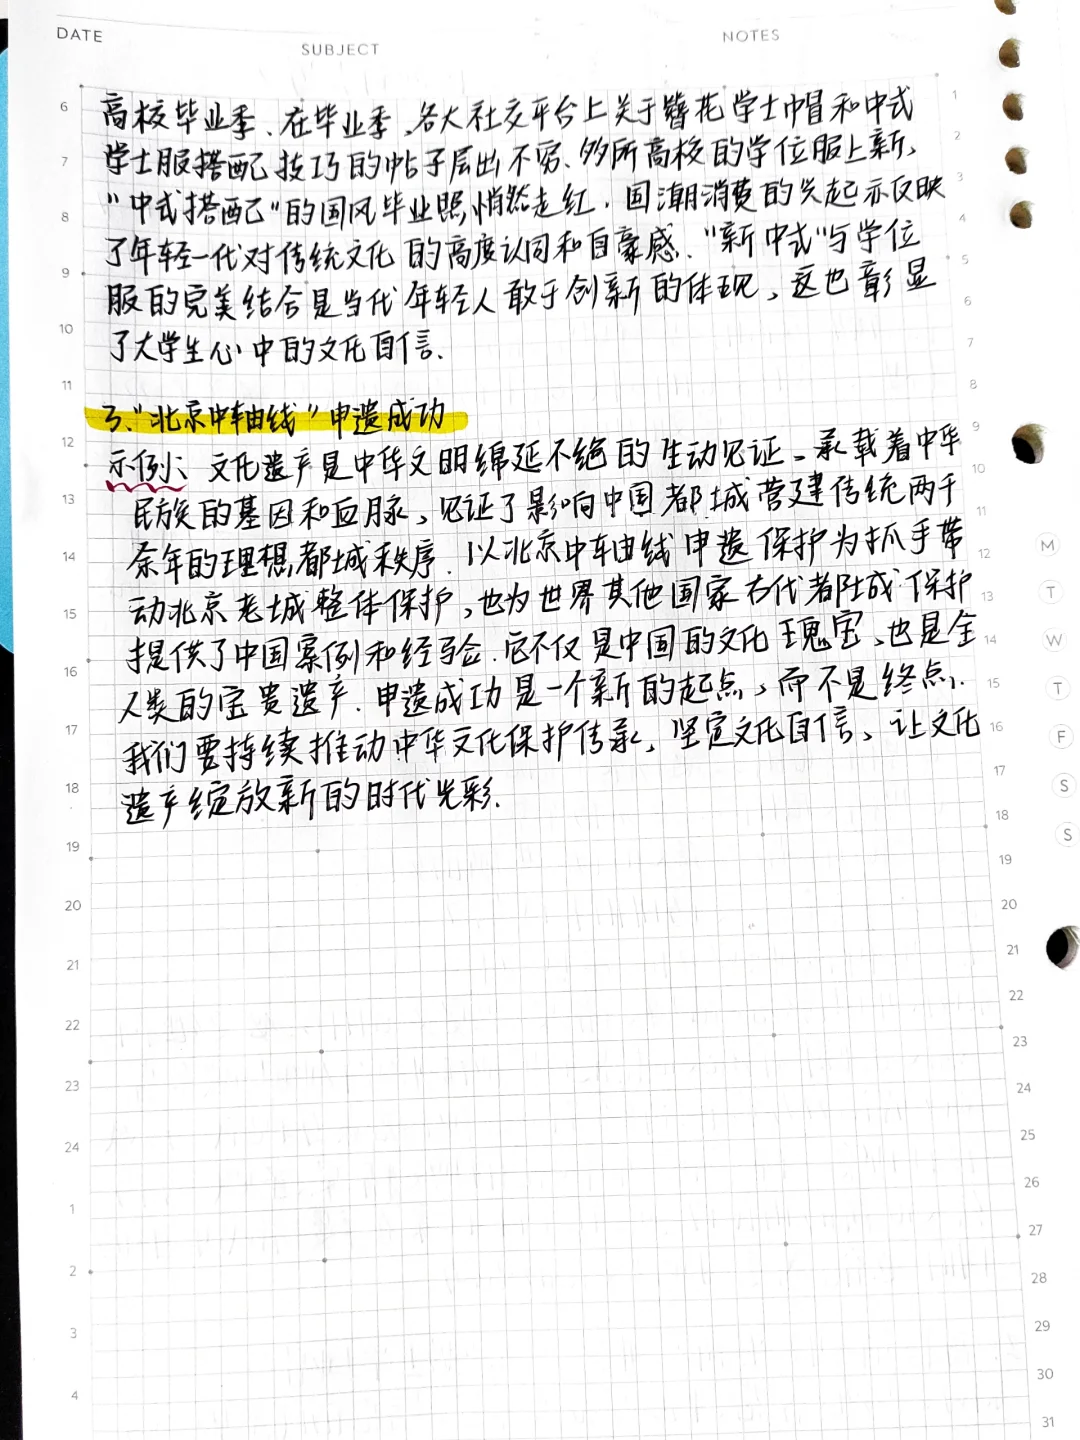 DATE
SUBJECT
NOTES
高校毕业季、在毕业季,各大社交平台上关于簪花学士帽和中式
学士服搭配技巧的帖子层出不穷、多所高校的学位服上新,
"中式搭配"的国风毕业照悄然走红.国潮消费的兴起亦反映
了年轻一代对传统文化的高度认同和自豪感."新中式"与学位
服的完美结合是当代年轻人敢于创新的体现,这也彰显
了大学生心中的文化自信.
3."北京中轴线"申遗成功
示例:文化遗产是中华文明绵延不绝的生动见证、承载着中华
民族的基因和血脉,见证了影响中国都城营建传统两千
余年的理想都城秩序.以北京中轴线申遗保护为抓手带
动北京老城整体保护,也为世界其他国家古代都城保护
提供了中国案例和经验.它不仅是中国的文化瑰宝,也是全
人类的宝贵遗产.申遗成功是一个新的起点,而不是终点.
我们要持续推动中华文化保护传承,坚定文化自信,让文化
遗产绽放新的时代光彩.
6
7
8
9
10
11
12
13
14
15
16
17
18
19
20
21
22
23
24
1
2
3
4
1
2
3
4
5
6
7
8
9
10
11
12
13
14
15
16
17
18
19
20
21
22
23
24
25
26
27
28
29
30
31
M
T
W
T
F
S
S